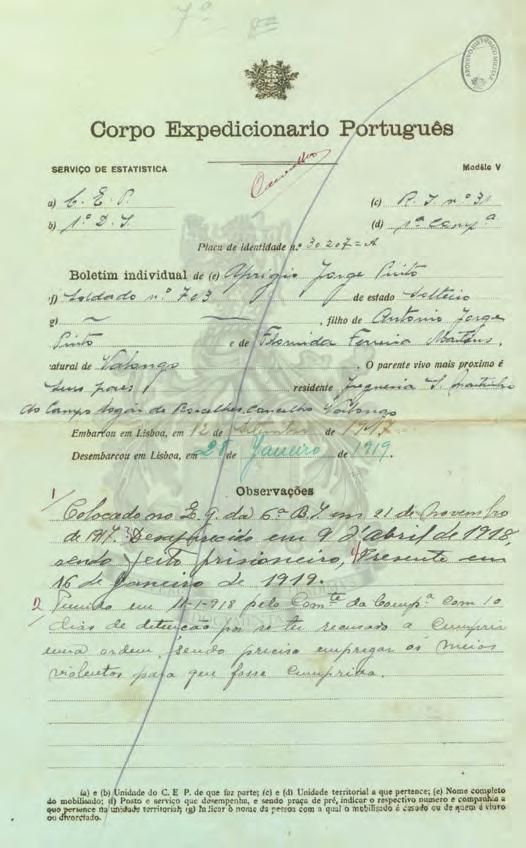 7ª
ARQUIVO HISTORICO MILITAR
Corpo Expedicionario Português
SERVIÇO DE ESTATISTICA
Modêlo V
a) C. E. P.
(c) R. I. nº 31
b) 1ª D. I.
(d) 1ª Compª
Placa de identidade n.º 30207=A
Boletim individual de (e) Aprigio Jorge Pinto
(f) Soldado nº 703 de estado solteiro
g) , filho de Antonio Jorge
Pinto e de Florinda Ferreira Martins,
natural de Valongo. O parente vivo mais proximo é
Seus paes residente freguesia S. Martinho
do Campo logar de Concelho Valongo
Embarcou em Lisboa, em 12 de Setembro de 1917
Desembarcou em Lisboa, em 25 de Janeiro de 1919.
Observações
1 Colocado no Q. G. da 6ª B. I. em 21 de Novembro
de 1917. 3 Desaparecido em 9 d'abril de 1918,
sendo feito prisioneiro, 4 Presente em
16 de Janeiro de 1919.
2 Punido em 11-1-918 pelo Comte da Compª com 10
dias de detenção por se ter recusado a cumprir
uma ordem, sendo preciso empregar os meios
violentos para que fosse cumprida.
(a) e (b) Unidade do C. E. P. de que faz parte; (c) e (d) Unidade territorial a que pertence; (e) Nome completo
do mobilisado; (f) Posto e serviço que desempenha, e sendo praça de pré, indicar o respectivo numero e companhia a
que pertence na unidade territorial; (g) Indicar o nome da pessoa com a qual o mobilisado é casado ou de quem é viuvo
ou divorciado.